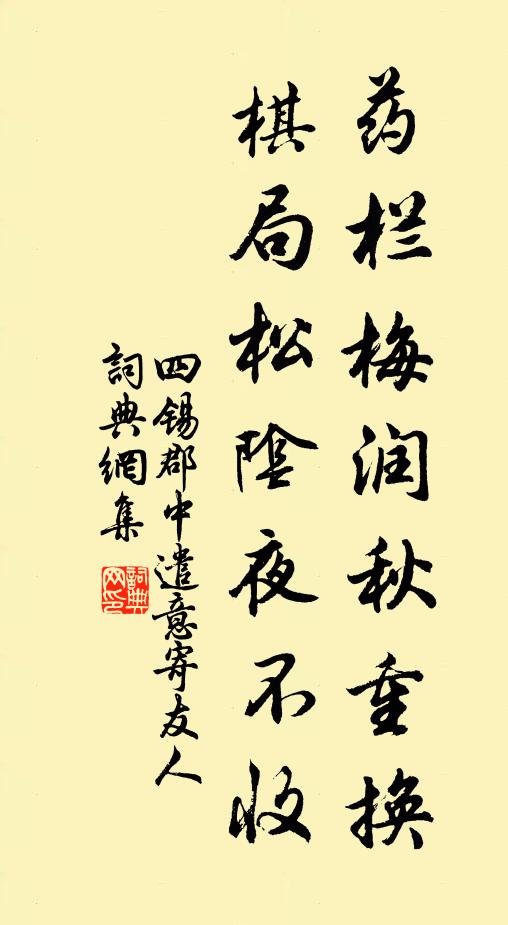 药栏梅润秋重换
棋局松陰夜不收
四锡郡中遣意寄友人
詞典網集
詞典
网印